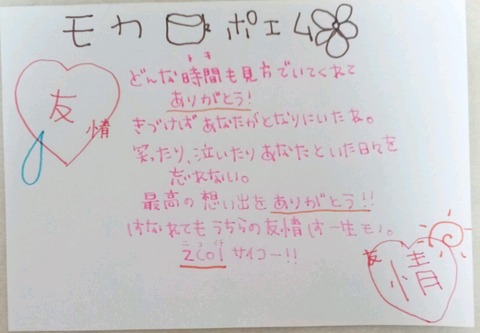 モカ ポエム
友情
どんな時間も見方でいてくれて
ありがとう!
きづけばあなたがとなりにいたね。
笑ったり、泣いたりあなたといた日々を
忘れない。
最高の想い出をありがとう!!
はなれてもうちらの友情は一生モノ。
サイコー!!
友情